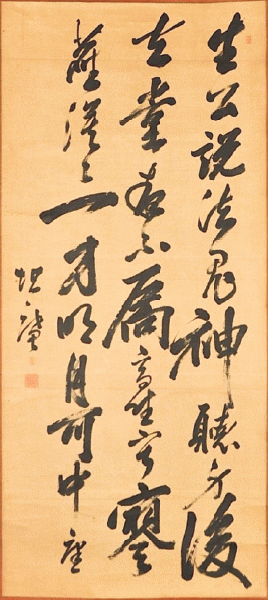 生公説法鬼神聽身後
空堂夜不扃高坐寂寥
塵漠々一方明月可中庭
坦